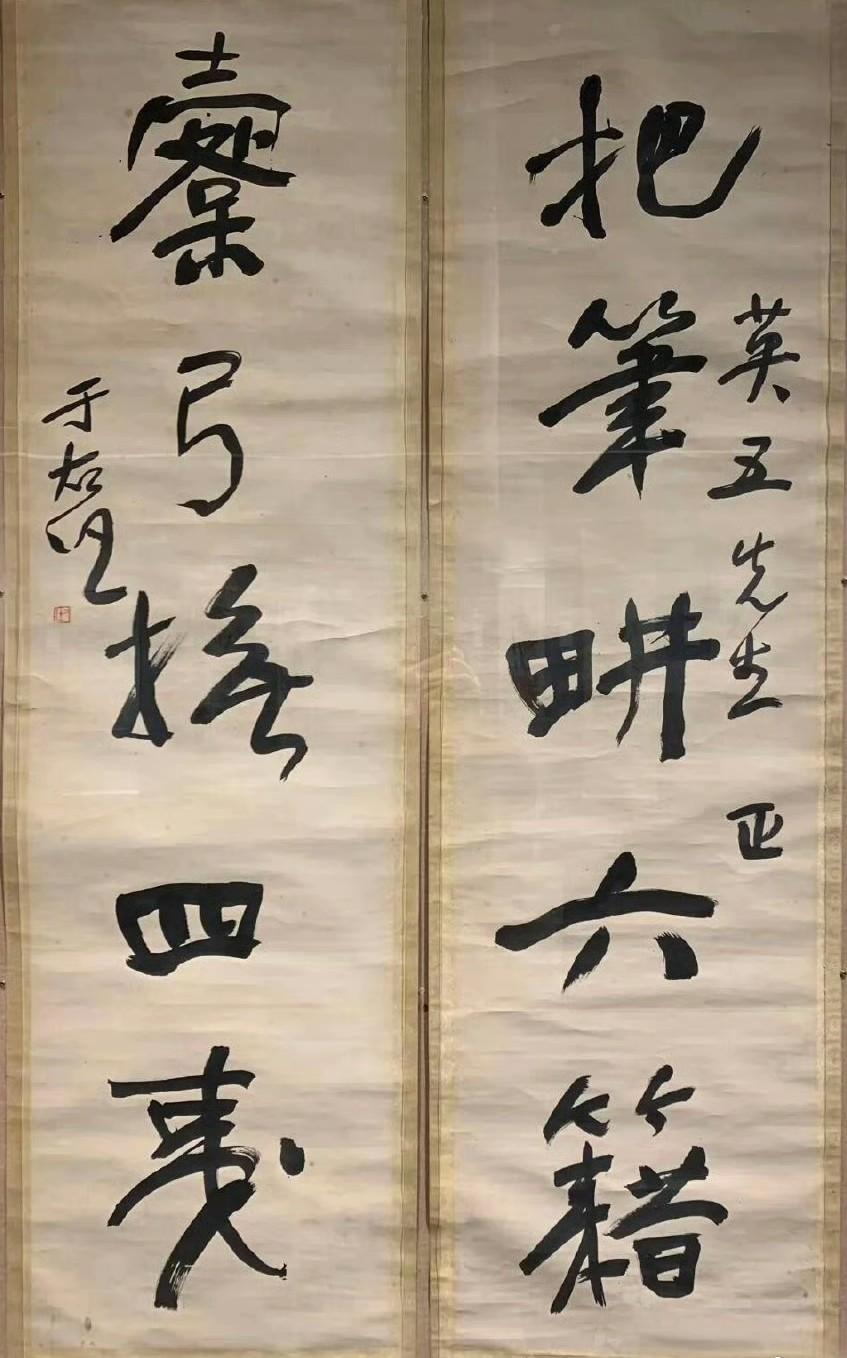 英五先生 正
把筆畊六籍
櫜弓撫四夷
于右任